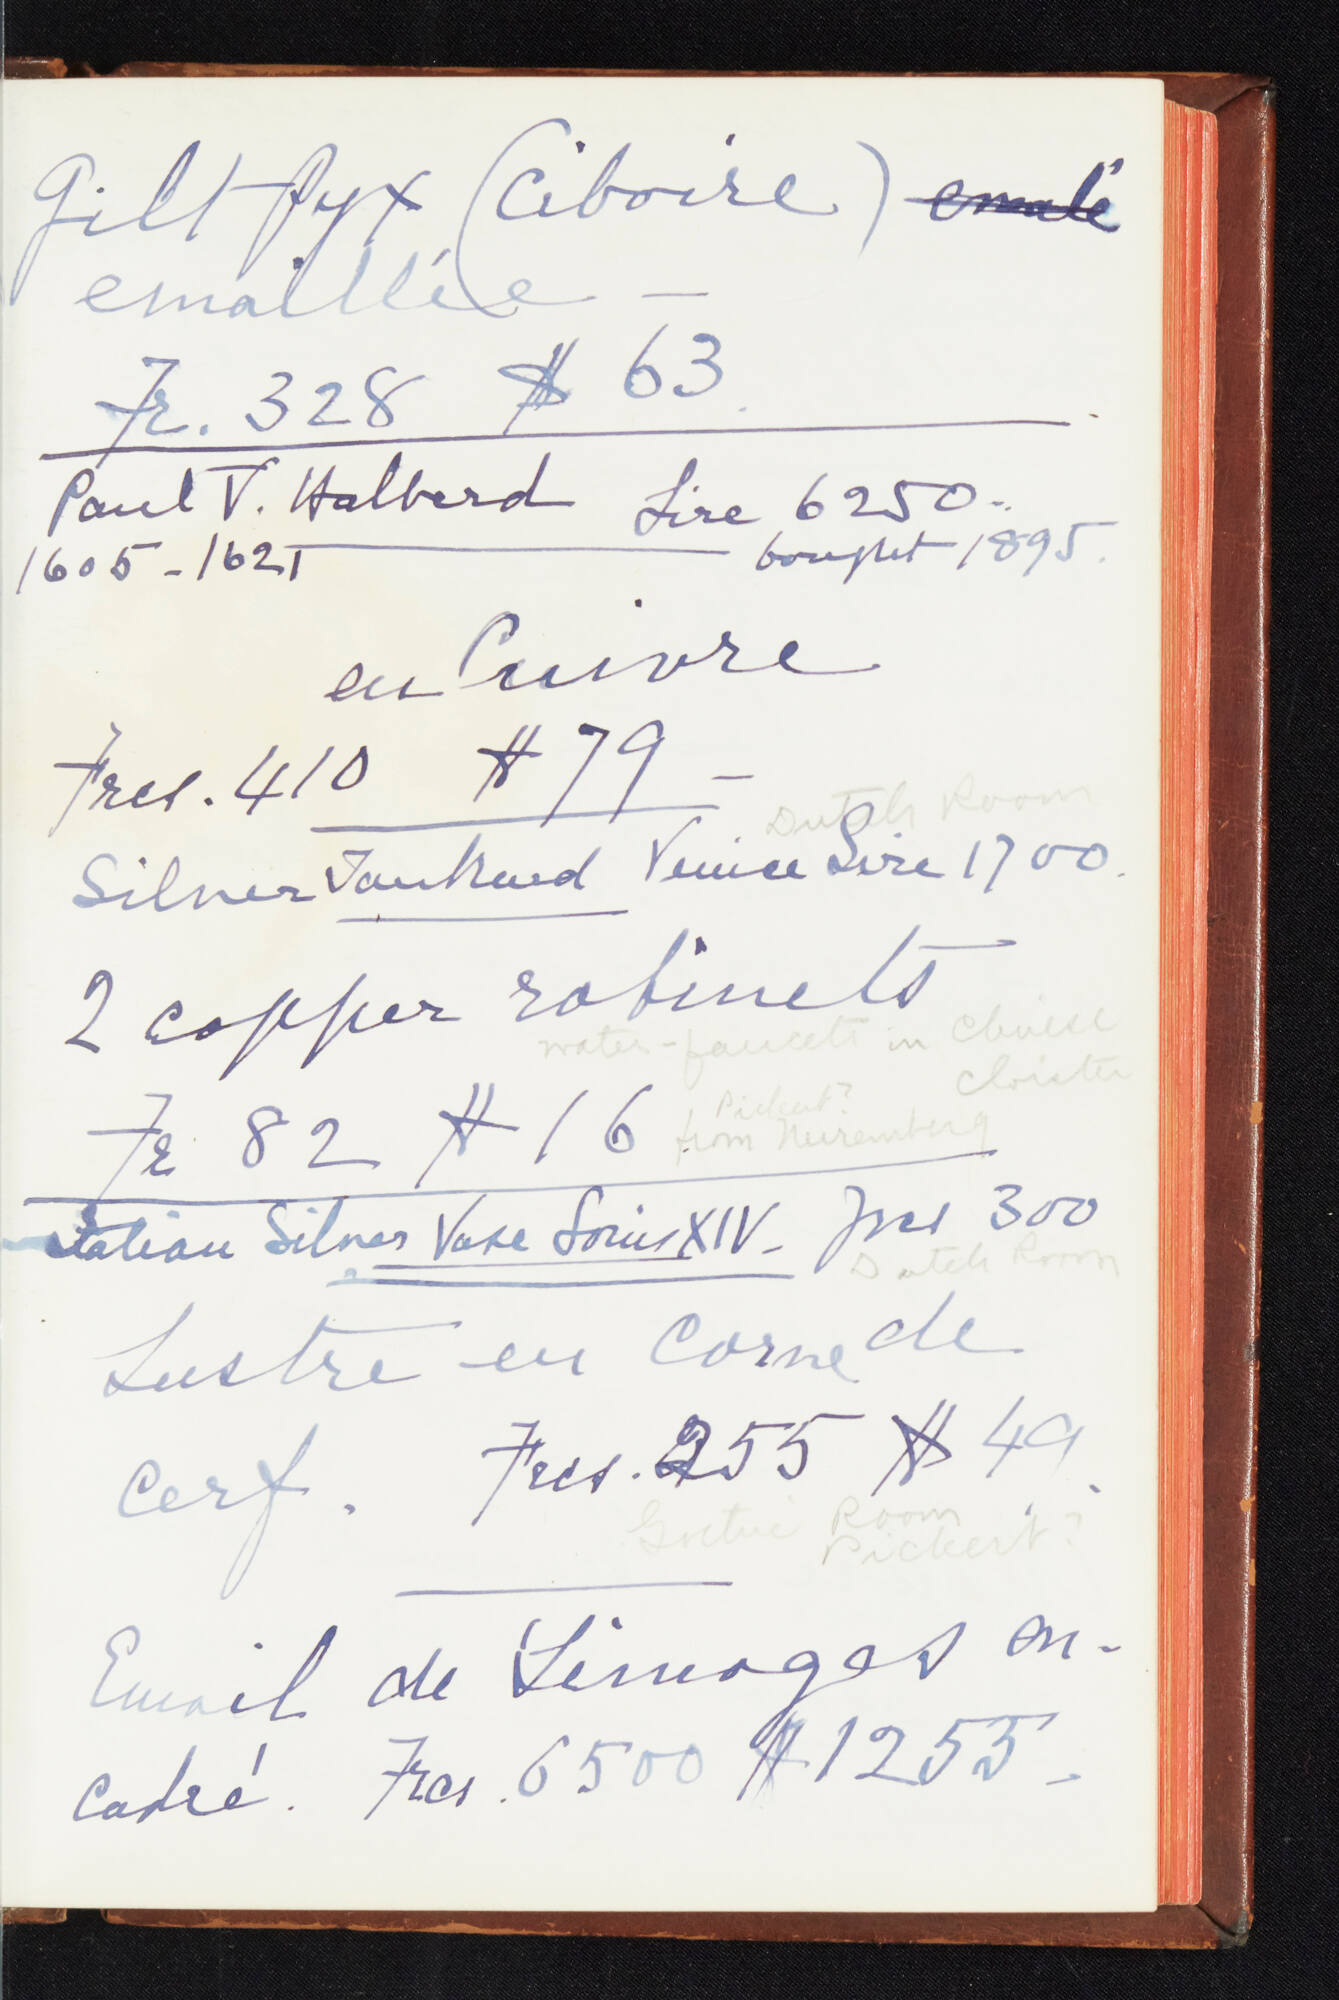 Gilt Pyx (Ciboire) emalé
emaillée —
Fr. 328 $ 63.
Paul V. Halberd Lire 6250..
1605-1621 bought 1895.
en Cuivre
Frcs. 410 $ 79 —
Dutch Room
Silver Tankard Venice Lire 1700.
2 copper robinets
water-faucets in Chinese
Cloister
Fr 82 $ 16
Pickert?
from Nuremberg
Italian Silver Vase Louis XIV - frcs 300
Dutch Room
Lustre en Corne de
Cerf. Frcs. 255 $ 49.
Gothic Room
Pickert?
Email de Limoges en-
cadré. Frcs. 6500 $ 1255 —